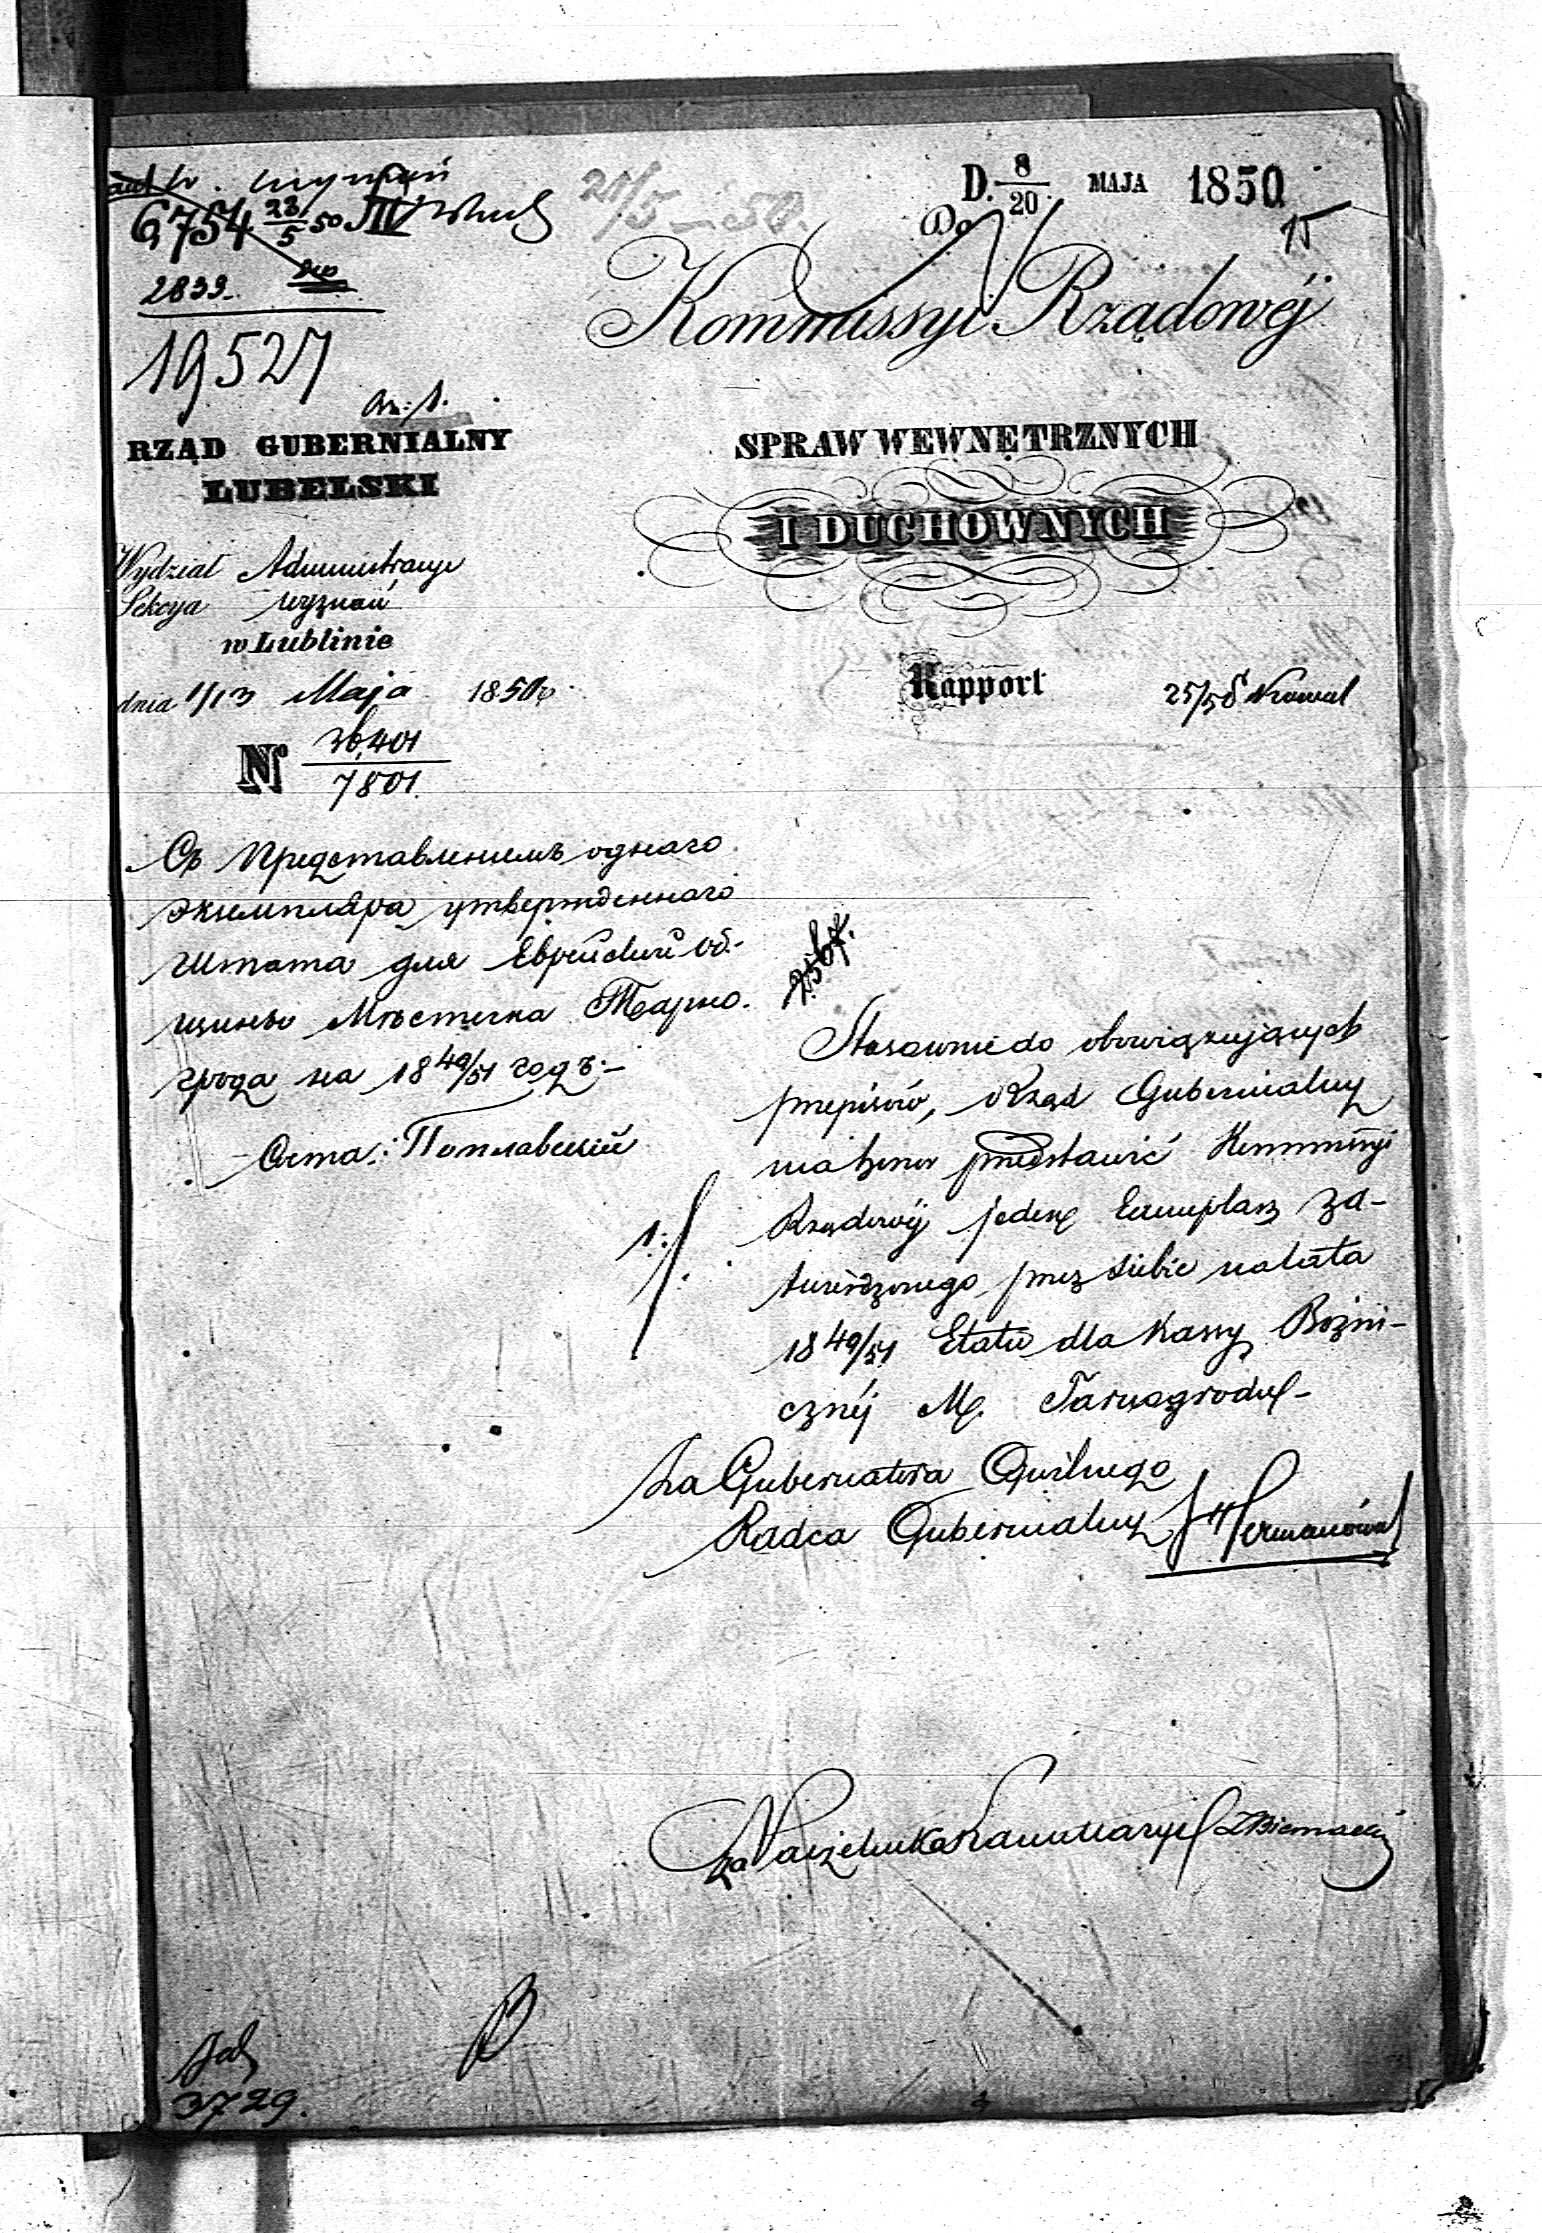 6754 23/5 50 IV
21/5 – 50.
D. 8/20 MAJA 1850
15
2839
19527
Do
Kommissyi Rządowéj
RZĄD GUBERNIALNY
LUBELSKI
SPRAW WEWNĘTRZNYCH
I DUCHOWNYCH
Wydział Administracyi
Sekcya Wyznań
w Lublinie
dnia 1/13 Maja 1850
Rapport
N 36,401
7801.
Съ Представлениемъ однаго
экземпляра утвержденнаго
Штата для Еврейской об-
щины Мѣстечка Тарно-
грода на 18 49/51 годъ.
Аста: Поплавский
Stosownie do obowiązujących
przepisów, Rząd Gubernialny
ma honor przedstawić Kommissyi
Rządowéj jeden Exemplarz za-
twierdzonego przez siebie na lata
18 49/51 Etatu dla Kassy Bożni-
cznéj M. Tarnogrodu
Za Gubernatora Cywilnego
Radca Gubernialny
za Naczelnika Kancellaryi
3729.